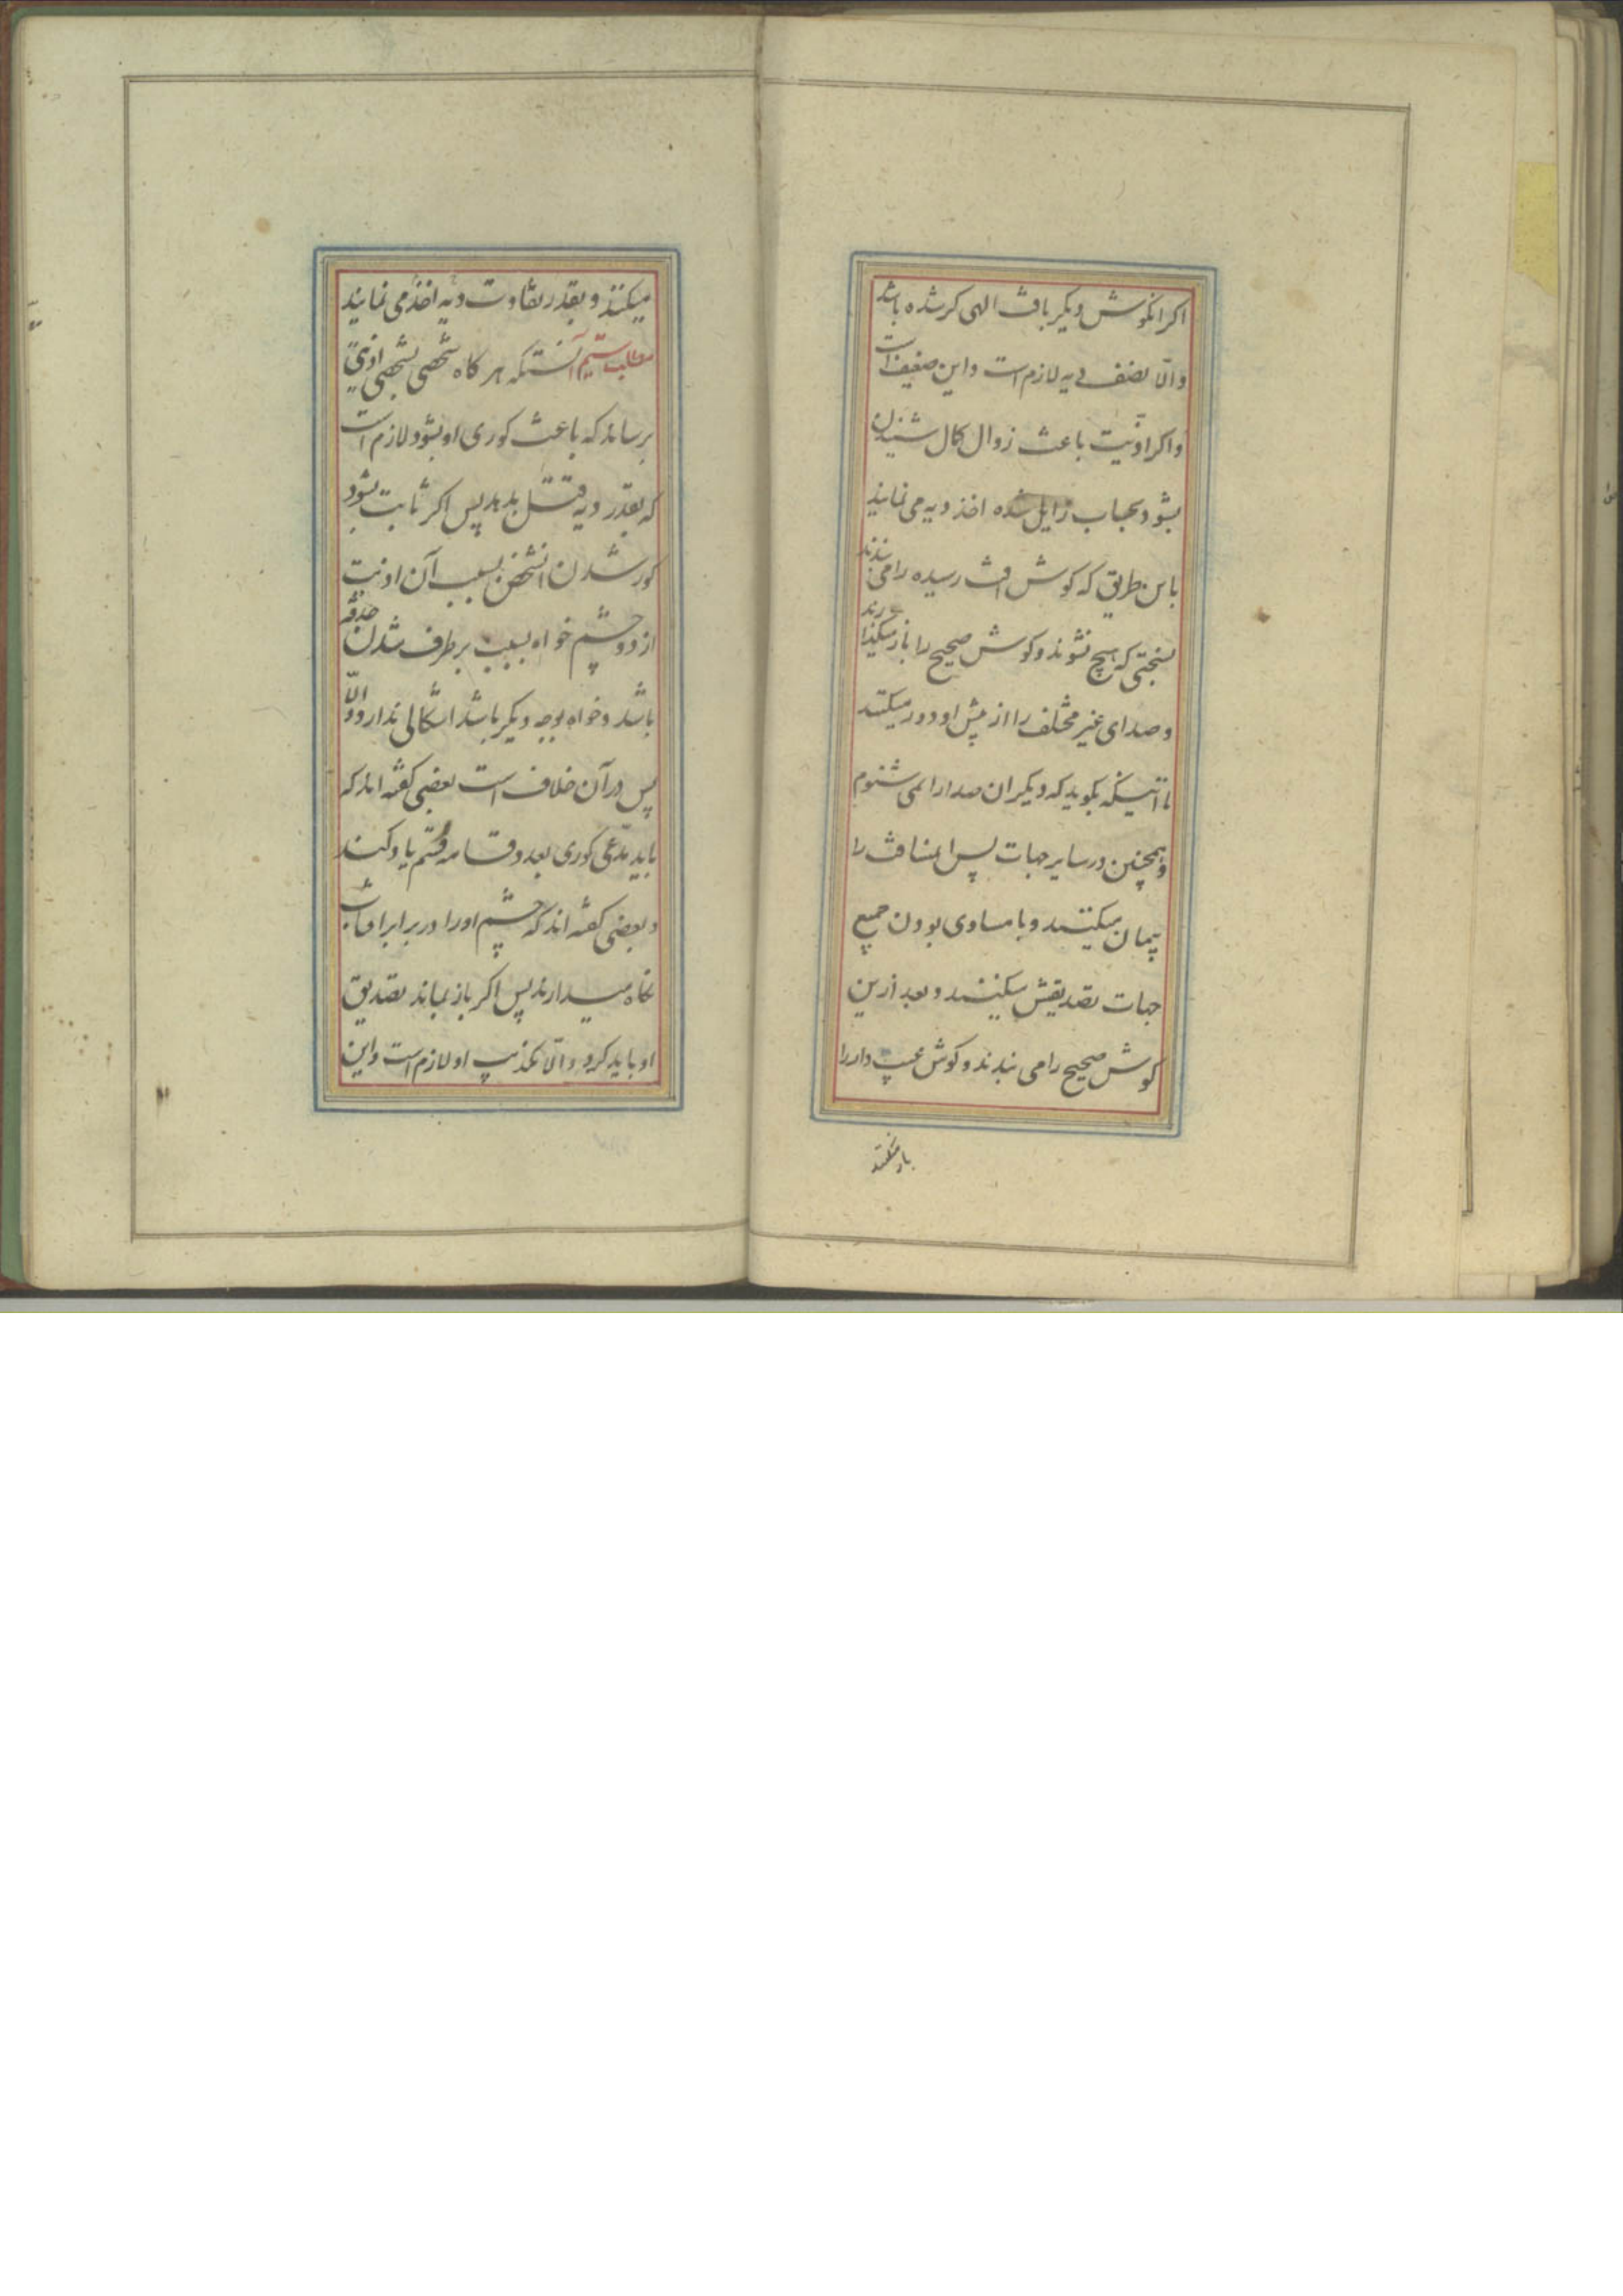 اکر انکوش دیکر بافت الهی کر شده باشد
والّا نصف دیه لازم است و این ضعیف است
و اکر اذیّت باعث زوال کمال شنیدن
بشود بحساب زایل شده اخذ دیه می نمایند
باین طریق که کوش افت رسیده را می بندند
بنحیی که هیچ نشوند و کوش صحیح را باز میکذارند
و صدای غیر مختلف را از پیش او دور میکنند
تا انیکه بکوید که دیکر ان صدا را نمی شنوم
و همچنین در سایر جهات پس المسافت را
پیمان میکنند و با مساوی بودن جمیع
جهات تصدیقش میکنند و بعد ازین
کوش صحیح را می بندند و کوش عیب دار را
باز میکنند
میکنند و بقدر تفاوت دیه اخذ می نمایند
مطلب ستیم آنستکه هر کاه شخصی بشخصی اذیتی
برساند که باعث کوری او بشود لازم است
که بقدر دیه قتل بدهد پس اکر ثابت بشود
کور شدن انشخص بسبب آن اذیت
از دو چشم خواه بسبب برطرف شدن حدقه
باشد و خواه بوجه دیکر باشد اشکالی ندارد والّا
پس در آن خلاف است بعضی کفته اند که
باید مدّعی کوری بعدد قسامه قسم یاد کند
و بعضی کفته اند که چشم او را در برابر افتاب
نکاه میدارند پس اکر باز بماند تصدیق
او باید کرد و الّا تکذیب او لازم است و این